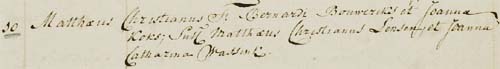 30 Matthæus Christianus fl. Bernardi Bouweriks et Joanna
Koks; Susc. Matthæus Christianus Jensen, et Joanna
Catharina Wassink